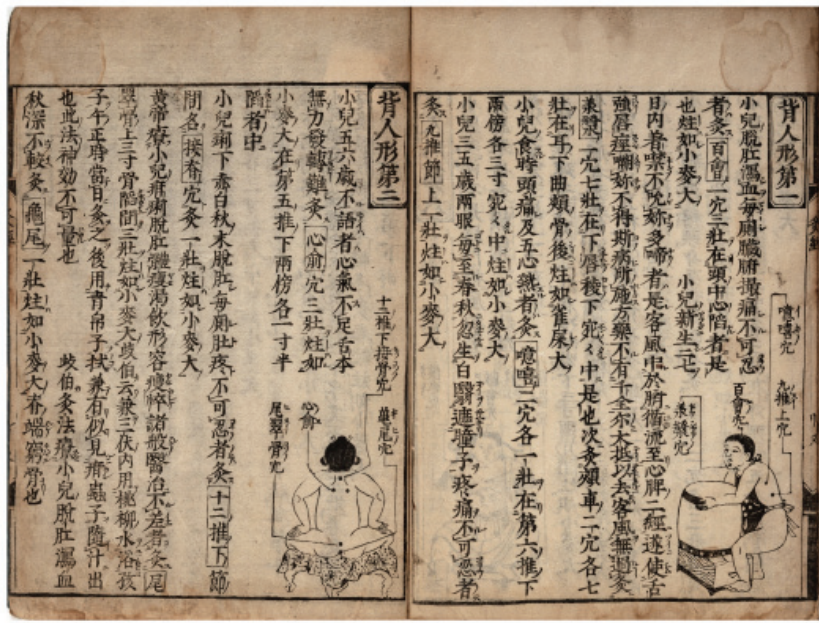 背人形第一
小兒脫肛瀉血每厠臟腑撮痛不可忍
者灸百會一穴三壯在頭中心陷者是
也炷如小麥大
小兒新生二七
日內着噤不吮奶多啼者是客風中於臍循流至心脾二經遂使舌
強唇痙嘬奶不得斯病所施方藥不有千全尔大抵以去客風無過灸
承漿一穴七壯在下唇稜下宛々中是也次灸頰車二穴各七
壯在耳下曲頰骨後炷如雀屎大
小兒食時頭痛及五心熱者灸噫嘻二穴各一壯在第六推下
兩傍各三寸宛々中炷如小麥大
小兒三五歲兩眼每至春秋忽生白翳遮瞳子疼痛不可忍者
灸九推節上一壯炷如小麥大
噫嘻穴
九推上穴
百會穴
背人形第二
小兒五六歲不語者心氣不足舌本
無力發轉難灸心俞穴三壯炷如
小麥大在第五推下兩傍各一寸半
陷者中
小兒痢下赤白秋末脫肛每厠肚疼不可忍者灸十二推下節
間名接脊穴灸一壯炷如小麥大
黃帝療小兒疳痢脫肛體瘦渴飲形容瘦悴諸般醫治不差者灸尾
翠骨上三寸骨陷間三壯炷如小麥大岐伯云兼三伏內用楊柳水浴孩
子午正時當日灸之後用青帛子拭兼有似見疳蟲子隨汁出
也此法神効不可量也
岐伯灸法療小兒脫肛瀉血
秋深不較灸龜尾一壯炷如小麥大脊端窮骨也
十二推下接脊穴
龜尾穴
心俞
尾翠骨穴